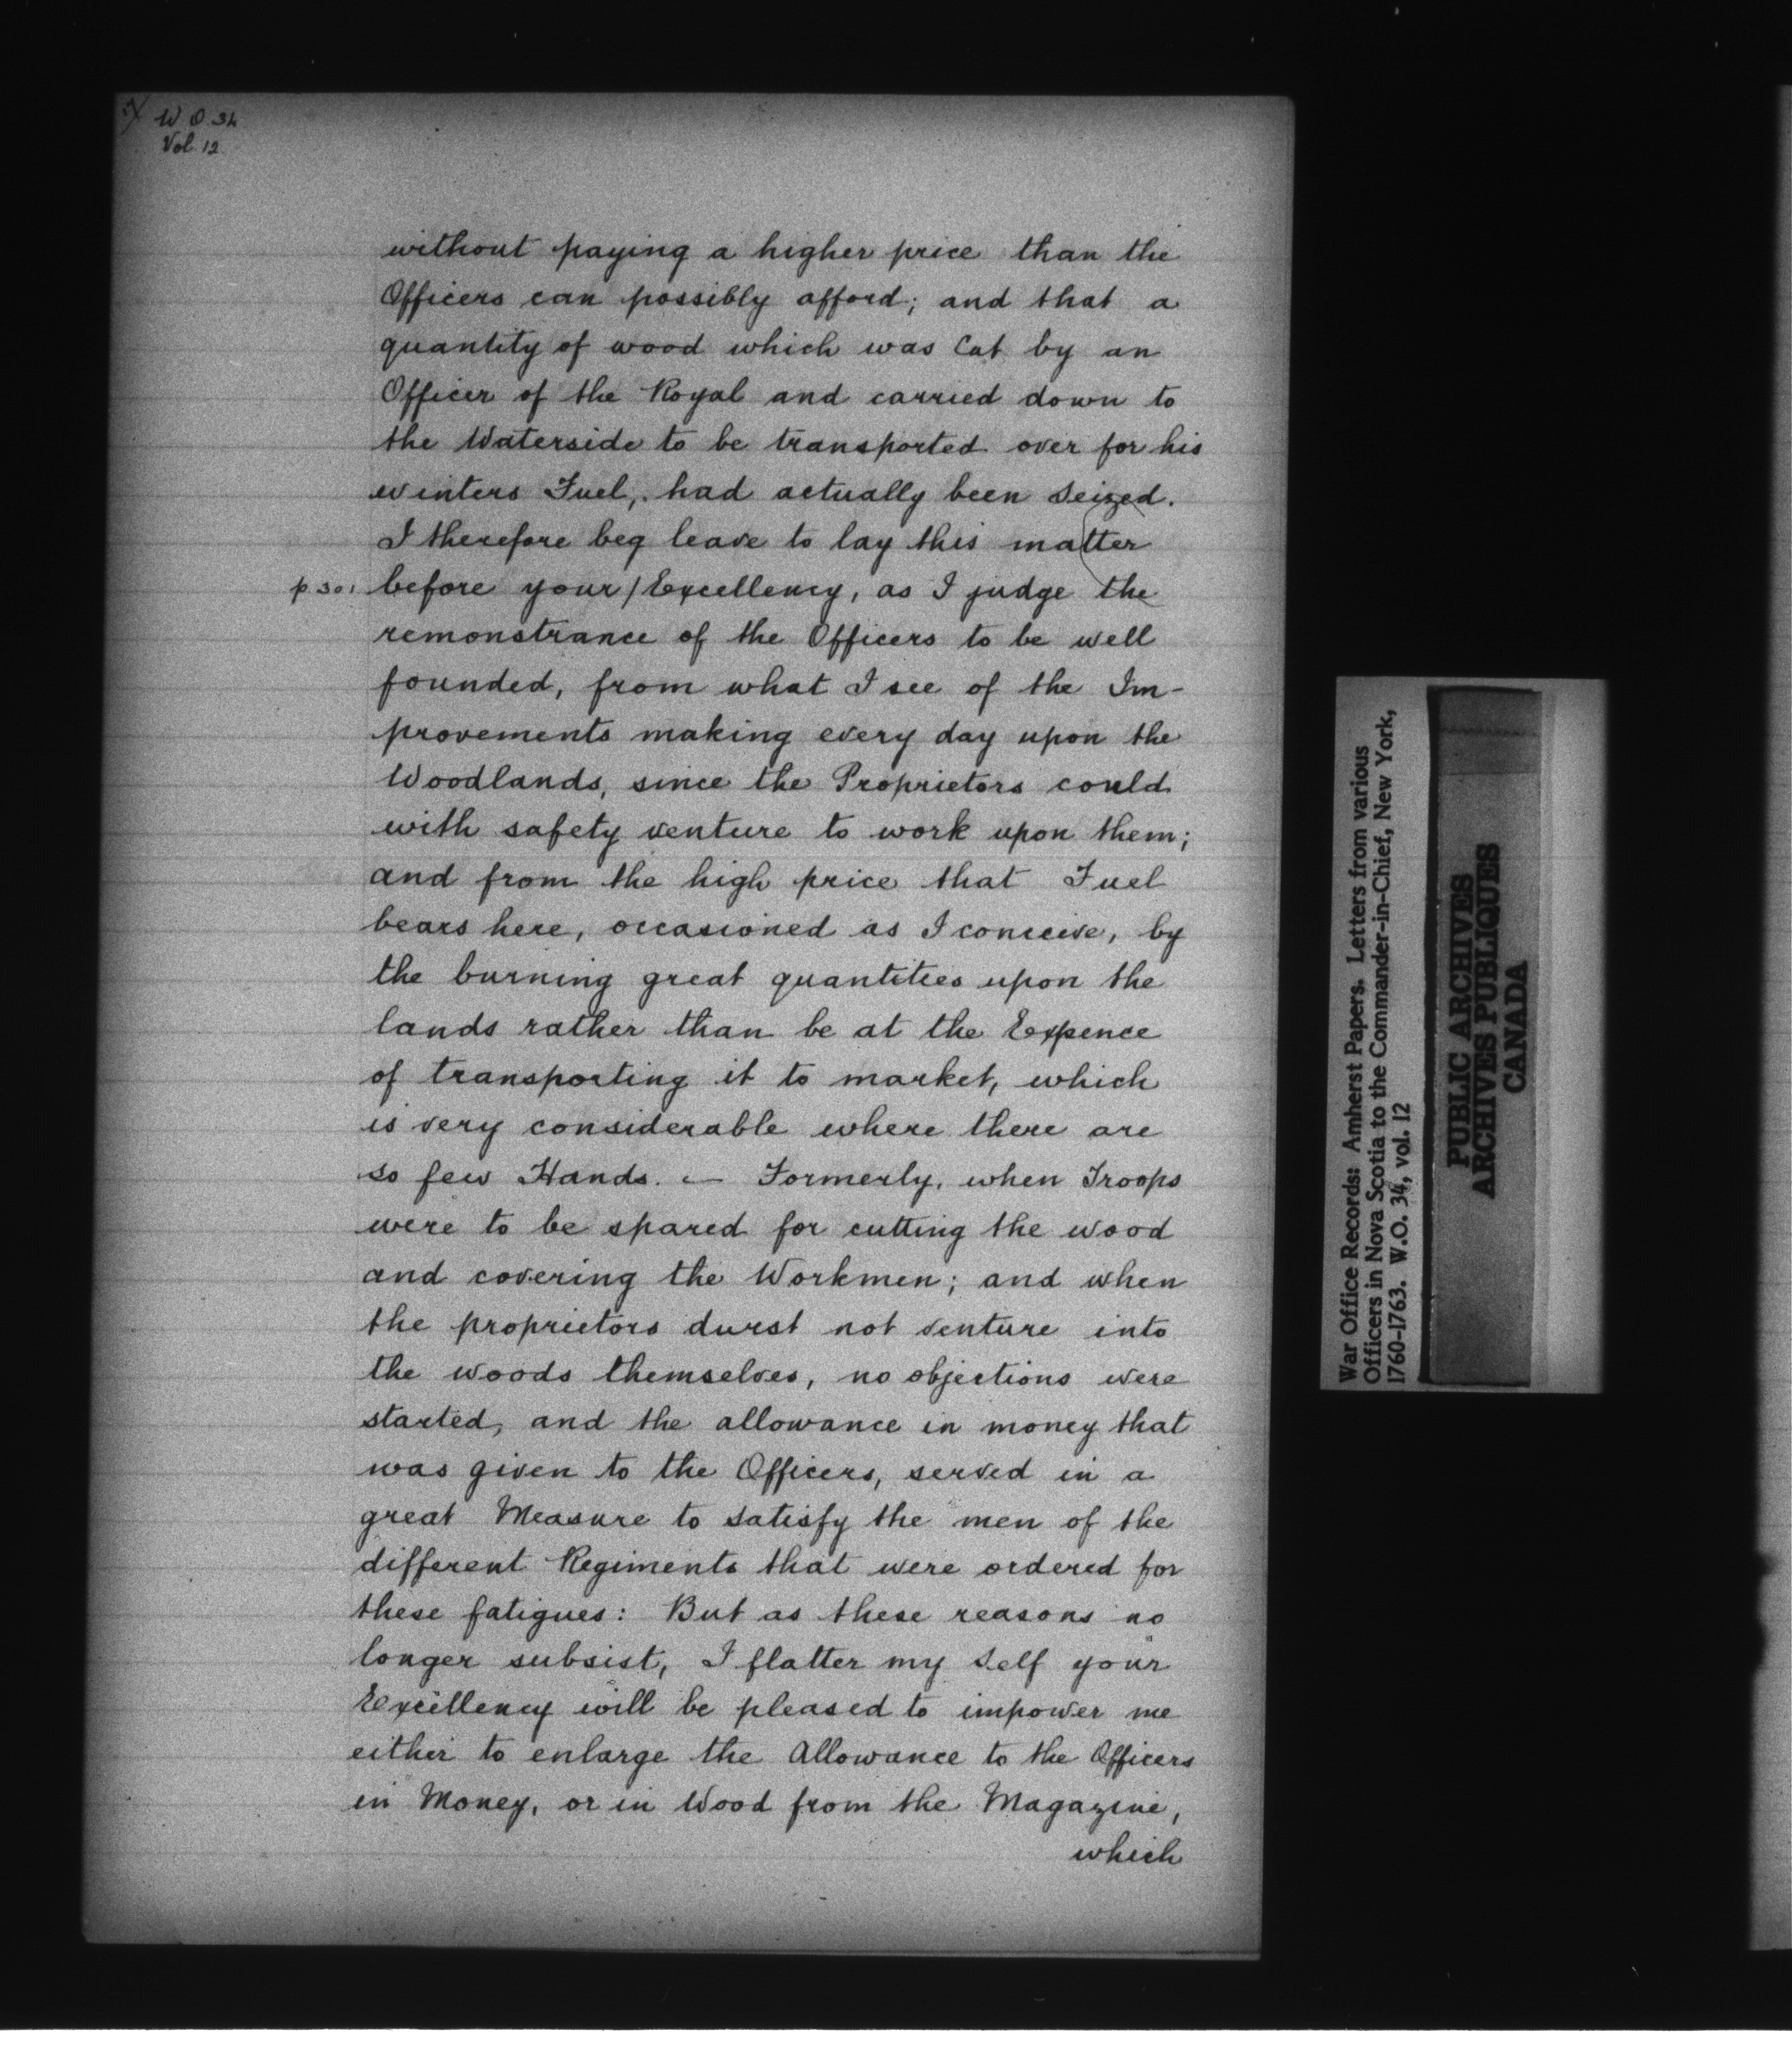 W.O. 34
Vol. 12
without paying a higher price than the
Officers can possibly afford; and that a
quantity of wood which was Cut by an
Officer of the Royal and carried down to
the Waterside to be transported over for his
winters Fuel, had actually been seized.
I therefore beg leave to lay this matter
p 30. before your / Excellency, as I judge the
remonstrance of the Officers to be well
founded, from what I see of the Im-
provements making every day upon the
Woodlands, since the Proprietors could
with safety venture to work upon them;
and from the high price that Fuel
bears here, occasioned as I conceive, by
the burning great quantities upon the
lands rather than be at the Expence
of transporting it to market, which
is very considerable where there are
so few Hands. — Formerly, when Troops
were to be spared for cutting the wood
and covering the Workmen; and when
the proprietors durst not venture into
the woods themselves, no objections were
started, and the allowance in money that
was given to the Officers, served in a
great Measure to satisfy the men of the
different Regiments that were ordered for
these fatigues: But as these reasons no
longer subsist, I flatter my self your
Excellency will be pleased to impower me
either to enlarge the Allowance to the Officers
in Money, or in Wood from the Magazine,
which
War Office Records: Amherst Papers. Letters from various
Officers in Nova Scotia to the Commander-in-Chief, New York,
1760-1763. W.O. 34, vol. 12
PUBLIC ARCHIVES
ARCHIVES PUBLIQUES
CANADA